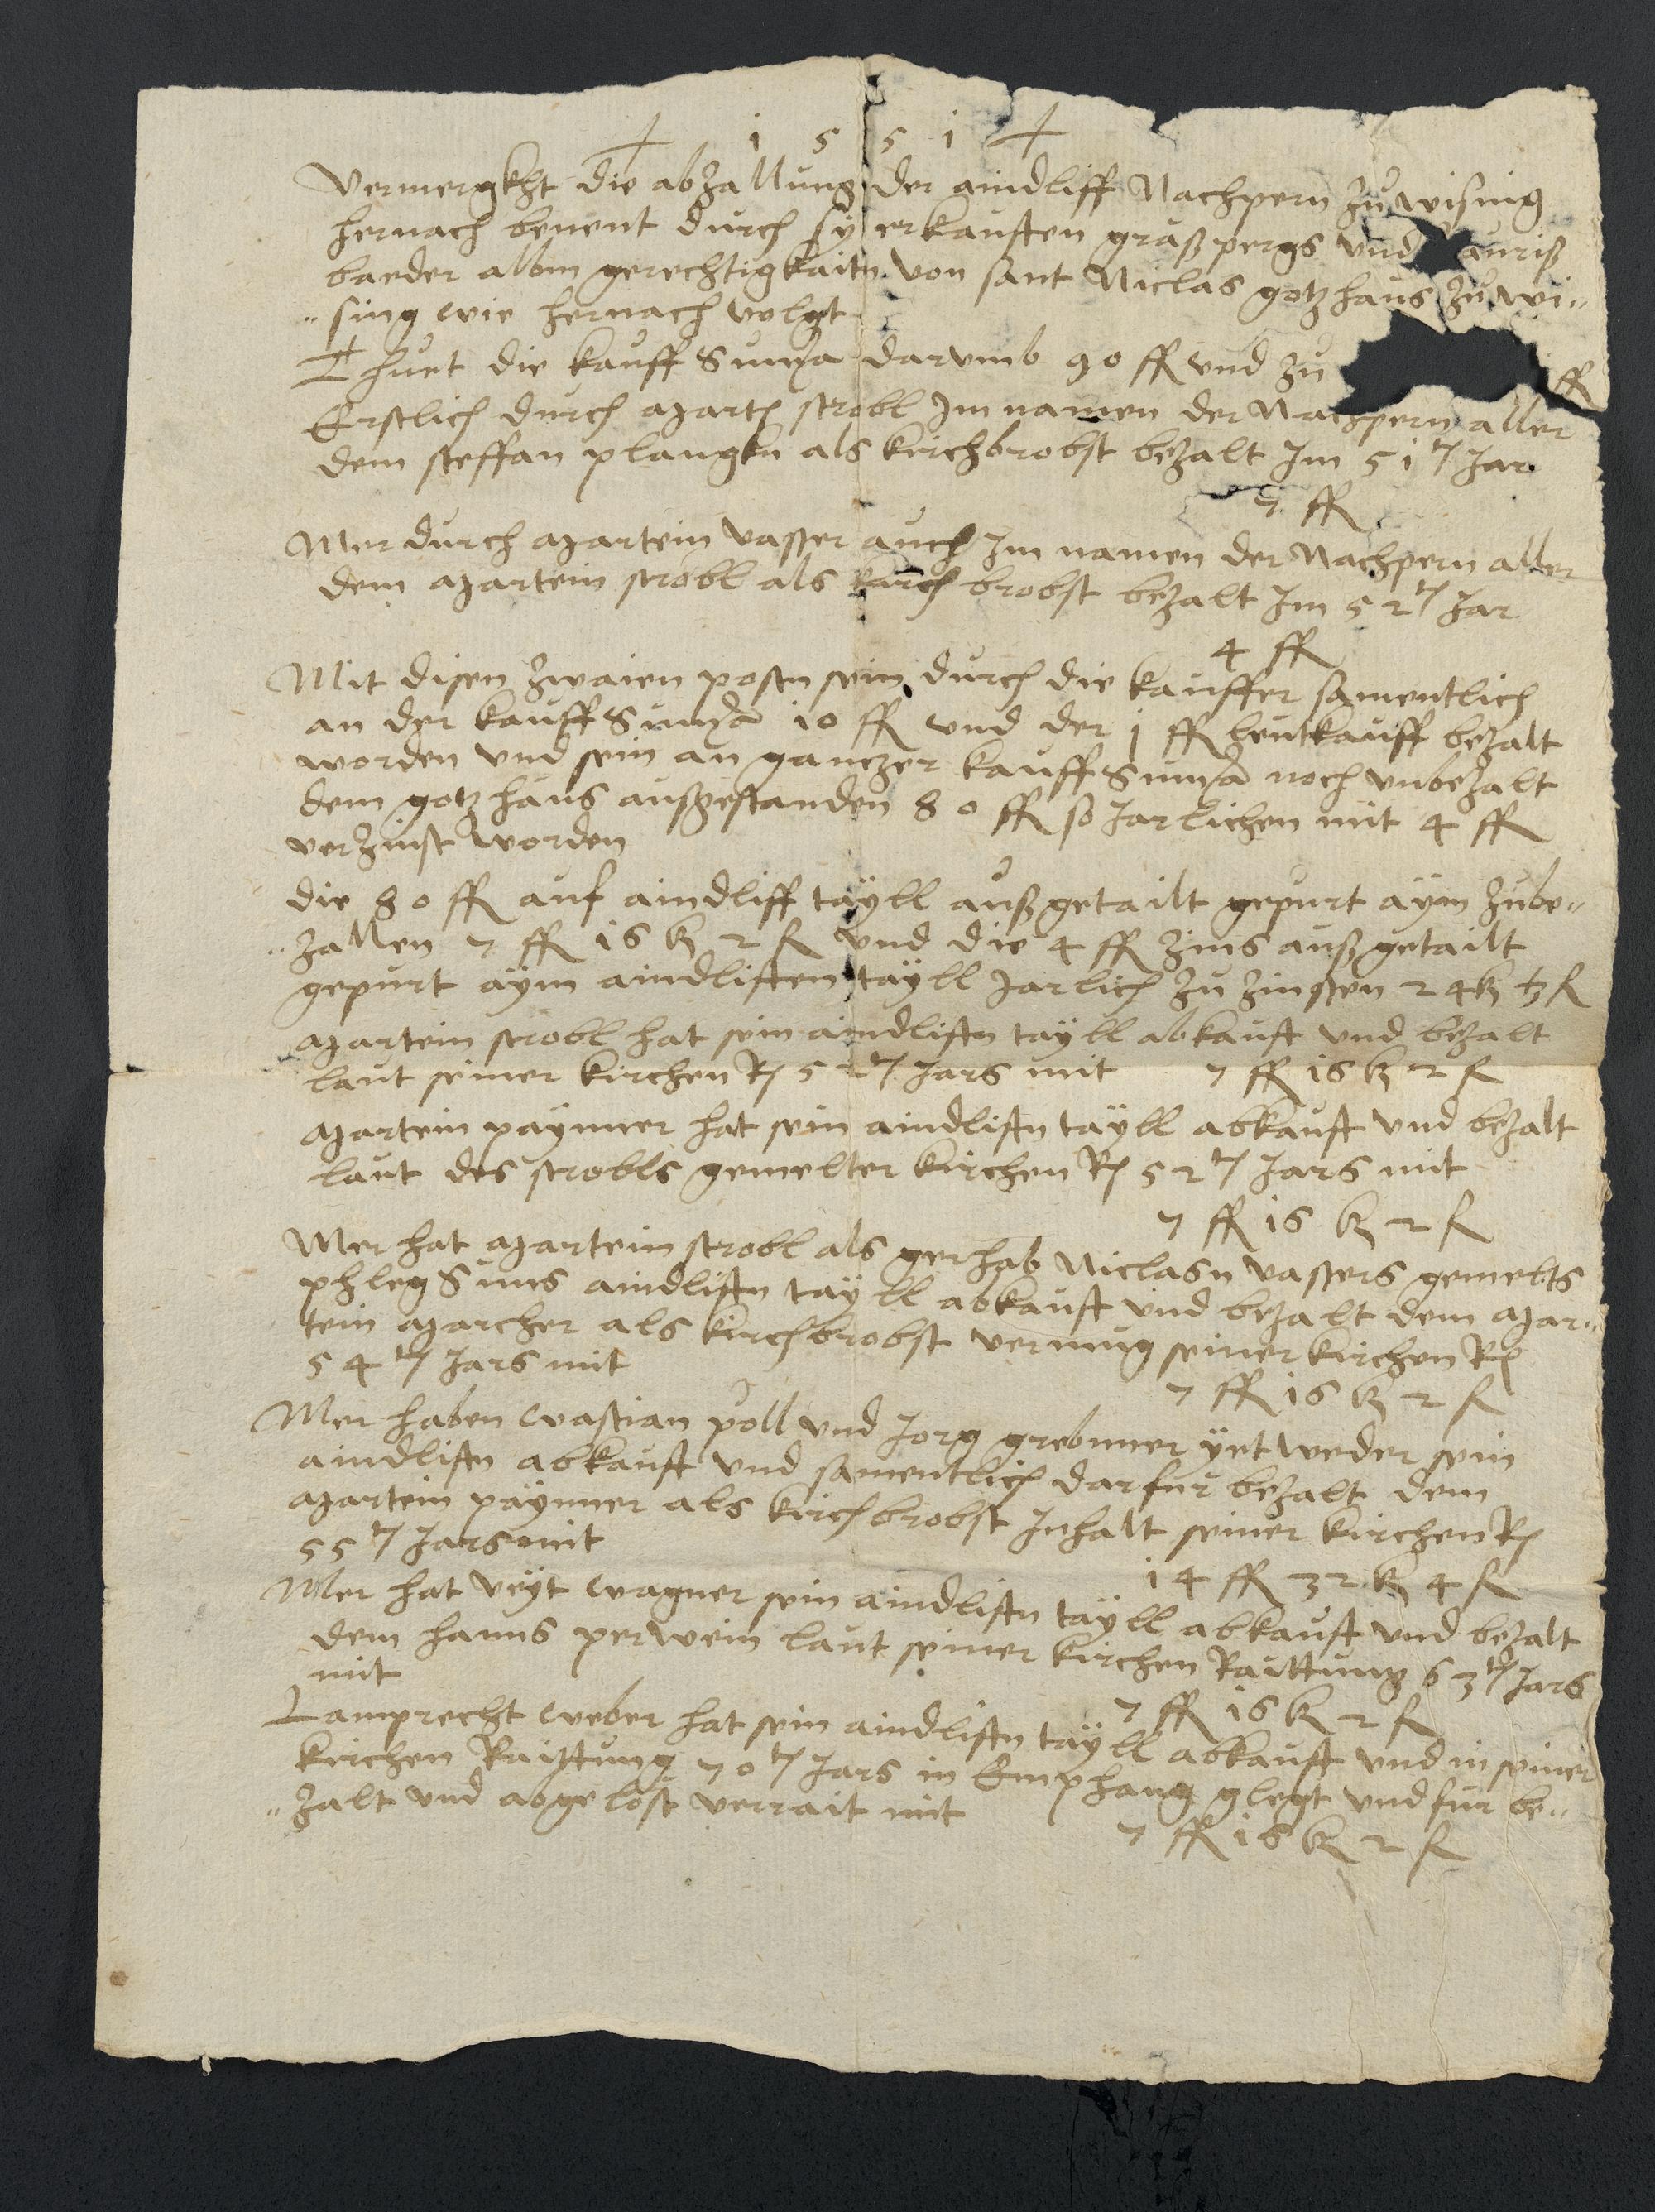 1 5 5 1
Vermergkht die abzallung der aindliff Nachpern zu wising
hernach benent durch sy erkauften graß pergs vnd
baeder albm gerechtigkaitn von sant Niclas gotzhaus zu wi-
sing wie hernach volgt
Thuet die kauff Suma darumb 90 fl vnd zu fl
Erstlich durch Marth strobl Im namen der Nachpern aller
dem steffan plangkn als kirchbrobst bezalt Im 51 t Jar
7 fl
Mer durch Martein vasser auch Im namen der Nachpern aller
dem Martein strobl als kirch brobst bezalt Im 52 t Jar
4 fl
Mit disen zwaien postn sein durch die kauffer samentlich
an der kauff Suma 10 fl vnd der 1 fl leutkauff bezalt
worden vnd sein an ganczer kauff Suma noch vnbezalt
dem gotzhaus außgestanden 80 fl so Jarlichen mit 4 fl
verzinst worden
die 80 fl auf aindliff täyll auß getailt gepurt äym zube-
zallen 7 fl 16 kr 2 f vnd die 4 fl zins auß getailt
gepurt äym aindliften täyll Jarlich zu zinssen 24 kr f
Martein strobl hat sein aindliftn täyll abkauft vnd bezalt
laut seiner kirchen R 52 t Jars mit 7 fl 16 kr 2 f
Martein päymer hat sein aindliftn täyll abkauft vnd bezalt
laut des strobls gemelter kirchen R 52 t Jars mit
7 fl 16 kr 2 f
Mer hat Martein strobl als gerhab Niclasn vassers gemelts
phleg Suns aindliftn täyll abkauft vnd bezalt dem Mar-
tein Marcher als kirchbrobst vermug seiner kirchen R
54 t Jars mit
7 fl 16 kr 2 f
Mer haben wastian pöll vnd Jorg grebmer yetweder sein
aindliftn abkauft vnd samentlich darfur bezalt dem
Martein päymer als kirchbrobst Inhalt seiner kirchen R
55 t Jars mit
14 fl 32 kr 4 f
Mer hat veyt wagner sein aindliftn täyll abkauft vnd bezalt
dem hanns perwein laut seiner kirchen Raittung 63 t Jars
mit
7 fl 16 kr 2 f
Lamprecht weber hat sein aindliftn täyll abkauft vnd in seiner
kirchen Raittung 70 t Jars in Emphang glegt vnd fur be-
zalt vnd abgelöst verrait mit
7 fl 16 kr 2 f